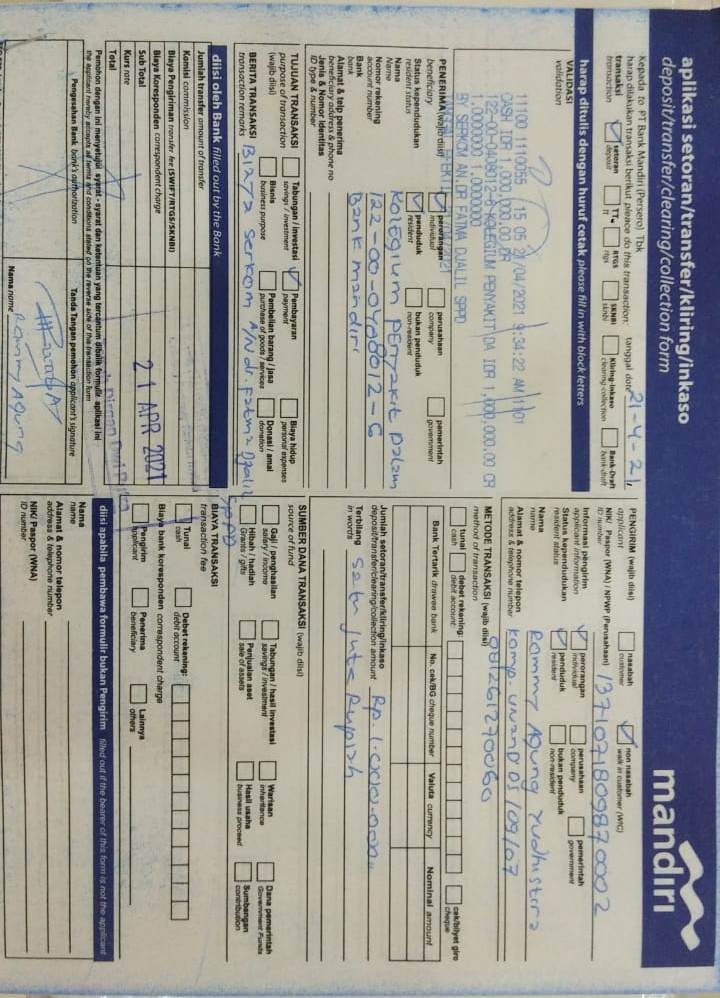 aplikasi setoran/transfer/kliring/inkaso
deposit/transfer/clearing/collection form
mandiri
Kepada to PT Bank Mandiri (Persero) Tbk
harap dilakukan transaksi berikut please do this transaction:
tanggal date 21-4-21
transaksi
transaction
setoran
deposit
TT
TT
RTGS
rtgs
SKNBI
sknbi
Kliring-Inkaso
clearing-collection
Bank Draft
bank draft
harap ditulis dengan huruf cetak please fill in with block letters
VALIDASI
validation
15 05 21/04/2021 9:34:22 AM
CASH IDR 1,000,000.00 CR
KOLEGIUM PENYAKIT DA IDR 1,000,000.00 CR
1.0000000 1.0000000
BY SERKOM AN.DR FATMA DJALIL SPPD
PENERIMA (wajib diisi)
beneficiary
perorangan
individual
perusahaan
company
pemerintah
government
Status kependudukan
resident status
penduduk
resident
bukan penduduk
non-resident
Nama
Name
Kolegium Penyakit Dalam
Nomor rekening
account number
122-00-0408012-6
Bank
bank
Bank mandiri
Alamat & telp penerima
beneficiary address & phone no
Jenis & Nomor Identitas
ID type & number
TUJUAN TRANSAKSI
purpose of transaction
(wajib diisi)
Tabungan / investasi
savings / investment
Pembayaran
payment
Biaya hidup
personal expenses
Bisnis
business purpose
Pembelian barang / jasa
purchase of goods / services
Donasi / amal
donation
BERITA TRANSAKSI
transaction remarks
Biaya serkom A/N dr. Fatma Djalil SPPD
diisi oleh Bank filled out by the Bank
Jumlah transfer amount of transfer
Komisi commission
Biaya Pengiriman transfer fee (SWIFT/RTGS/SKNBI)
Biaya Koresponden correspondent charge
Sub Total
Kurs rate
Total
21 APR 2021
Pemohon dengan ini menyetujui syarat - syarat dan ketentuan yang tercantum dibalik formulir aplikasi ini
the applicant hereby accepts all terms and conditions stated on the reverse side of this transaction form
Pengesahan Bank bank's authorization
Tanda Tangan pemohon applicant's signature
Nama name
Rommy Agung
PENGIRIM (wajib diisi)
applicant
nasabah
customer
non nasabah
walk in customer (WIC)
NIK/ Paspor (WNA) / NPWP (Perusahaan)
ID number
1371071809870002
Informasi pengirim
applicant information
perorangan
individual
perusahaan
company
pemerintah
government
Status kependudukan
resident status
penduduk
resident
bukan penduduk
non-resident
Nama
name
Rommy Agung Yudhistira
Alamat & nomor telepon
address & telephone number
Komp. Unand D5/09/07
081261270060
METODE TRANSAKSI (wajib diisi)
method of transaction
tunai
cash
debet rekening:
debit account:
cek/bilyet giro
cheque
Bank Tertarik drawee bank
No. cek/BG cheque number
Valuta currency
Nominal amount
Jumlah setoran/transfer/kliring/inkaso
deposit/transfer/clearing/collection amount
Rp. 1.000.000,-
Terbilang
in words
Satu Juta Rupiah
SUMBER DANA TRANSAKSI (wajib diisi)
source of fund
Gaji / penghasilan
salary / income
Tabungan / hasil investasi
savings / investment
Warisan
inheritance
Dana pemerintah
Government Funds
Hibah / hadiah
Grants / gifts
Penjualan aset
sale of assets
Hasil usaha
business proceed
Sumbangan
contribution
BIAYA TRANSAKSI
transaction fee
Tunai
cash
Debet rekening:
debit account
Biaya bank koresponden correspondent charge
Pengirim
applicant
Penerima
beneficiary
Lainnya
others
diisi apabila pembawa formulir bukan Pengirim filled out if the bearer of this form is not the applicant
Nama
name
Alamat & nomor telepon
address & telephone number
NIK/ Paspor (WNA)
ID number